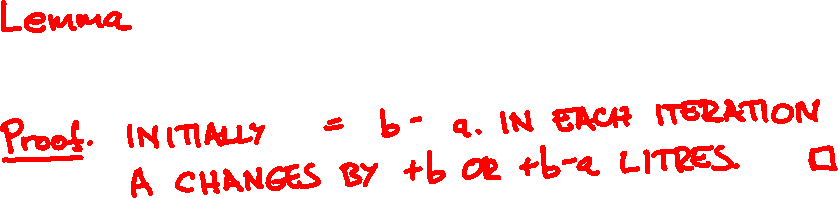 Lemma
Proof. INITIALLY = b- a. IN EACH ITERATION
A CHANGES BY +b OR +b-a LITRES. □